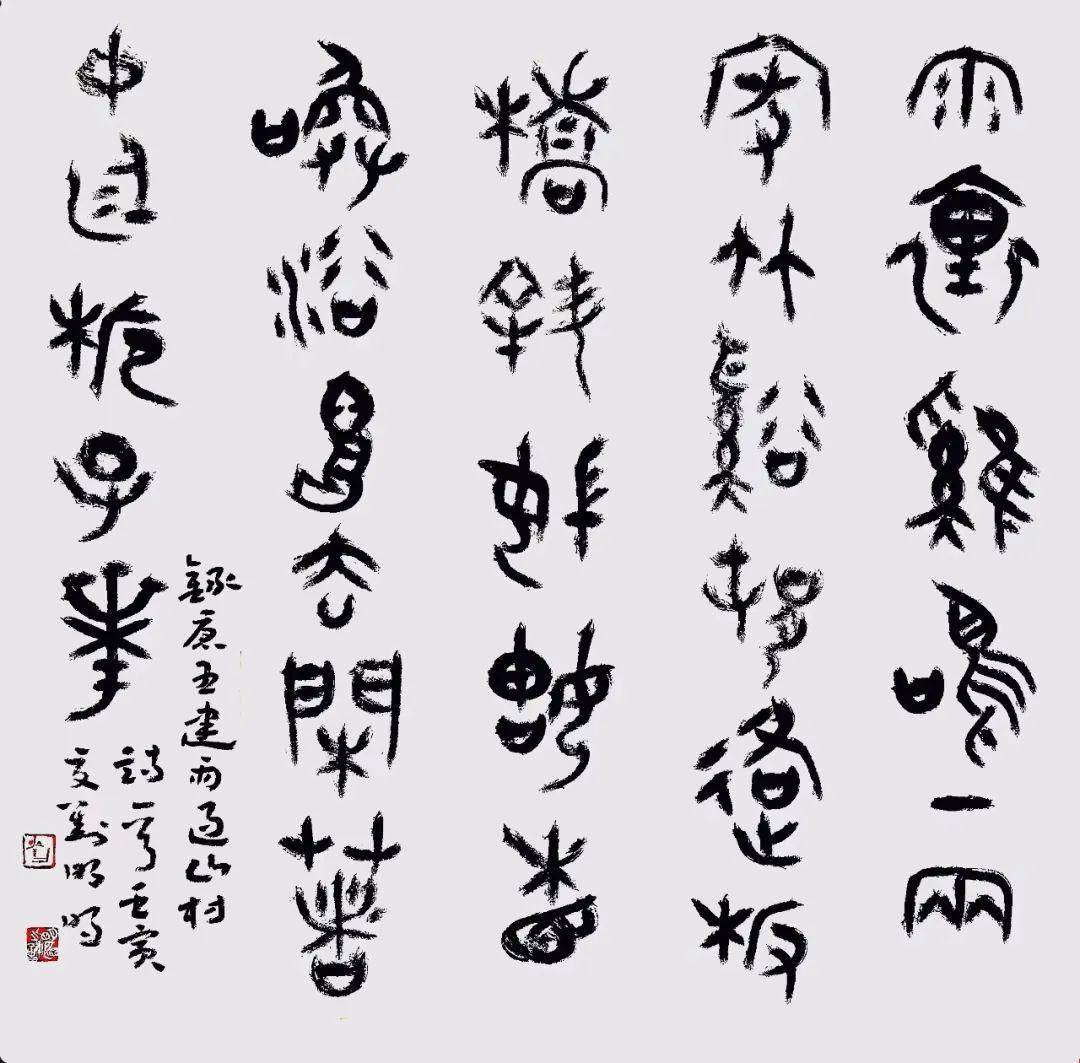 雨裏雞鳴一兩
家竹谿村路板
橋斜婦姑相
喚浴蠶去閑著
中庭梔子華
錄唐王建雨過山村
詩一首壬寅
夏